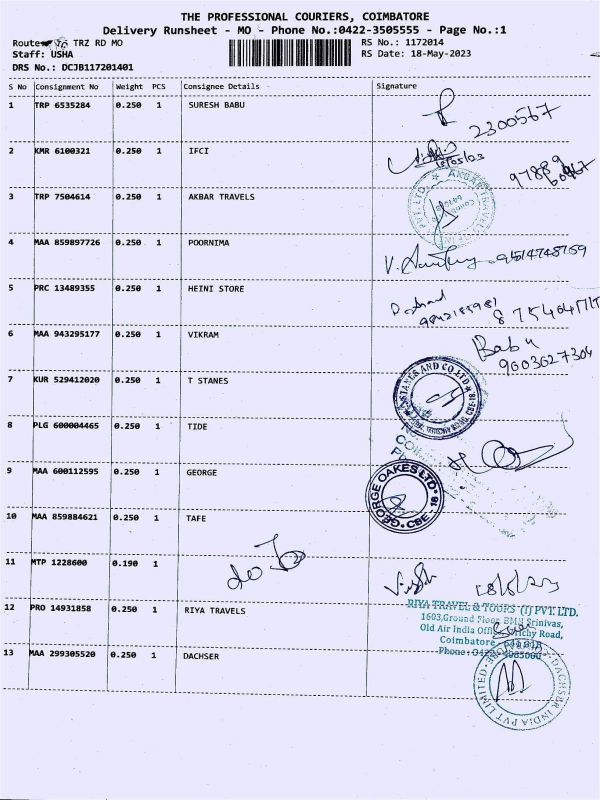 THE PROFESSIONAL COURIERS, COIMBATORE
Delivery Runsheet - MO - Phone No.:0422-3505555 - Page No.:1
Route TRZ RD MO
RS No.: 1172014
Staff: USHA
RS Date: 18-May-2023
DRS No.: DCJB117201401
S No Consignment No Weight PCS Consignee Details Signature
1 TRP 6535284 0.250 1 SURESH BABU
2300567
2 KMR 6100321 0.250 1 IFCI
3 TRP 7504614 0.250 1 AKBAR TRAVELS
4 MAA 859897726 0.250 1 POORNIMA
5 PRC 13489355 0.250 1 HEINI STORE
6 MAA 943295177 0.250 1 VIKRAM
Babu
9003627304
7 KUR 529412020 0.250 1 T STANES
8 PLG 600004465 0.250 1 TIDE
9 MAA 600112595 0.250 1 GEORGE
GEORGE OAKES LTD. CBE - 18
10 MAA 859884621 0.250 1 TAFE
11 MTP 1228600 0.190 1
12 PRO 14931858 0.250 1 RIYA TRAVELS
RIYA TRAVEL & TOURS (I) PVT. LTD.
1603,Ground Floor, Srinivas,
Old Air India Road,
Coimbatore
Phone:
13 MAA 299305520 0.250 1 DACHSER
DACHSER INDIA PVT LIMITED